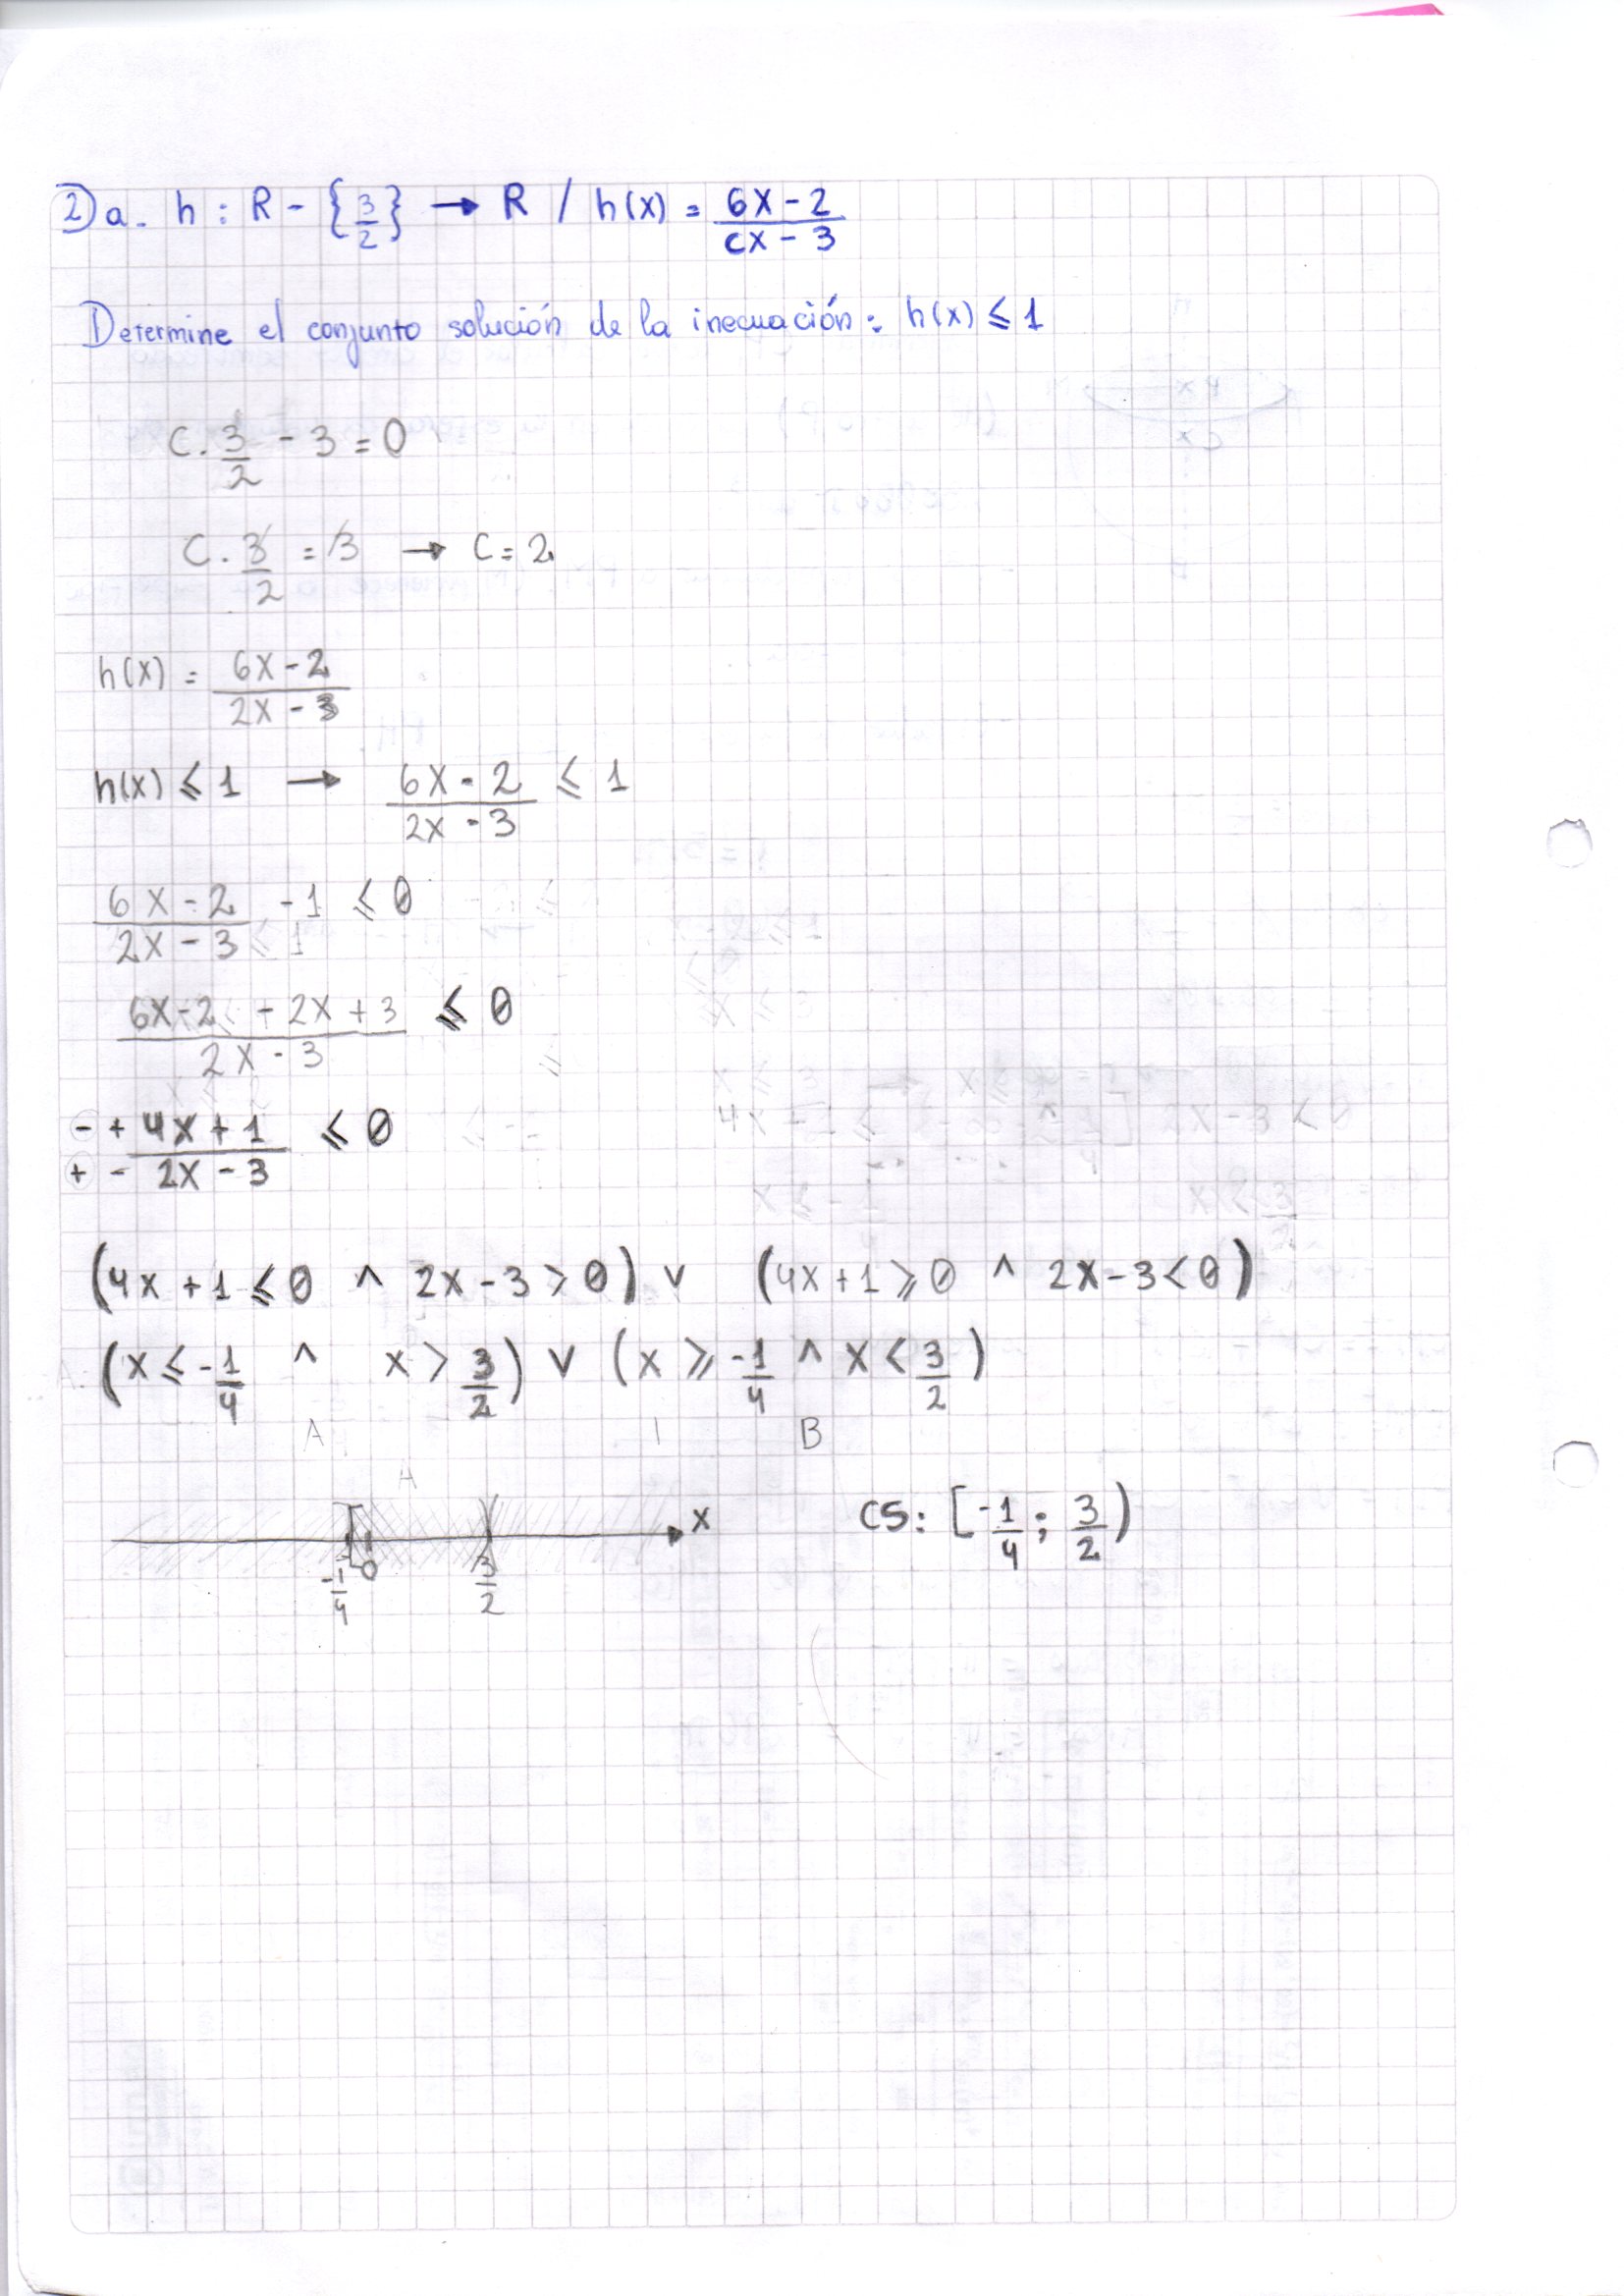 2) a. h : R - {3/2} → R / h(x) = (6x - 2)/(cx - 3)
Determine el conjunto solución de la inecuación: h(x) ≤ 1
C . 3/2 - 3 = 0
C . 3/2 = 3 → C = 2
h(x) = (6x - 2)/(2x - 3)
h(x) ≤ 1 → (6x - 2)/(2x - 3) ≤ 1
(6x - 2)/(2x - 3) - 1 ≤ 0
(6x - 2 - 2x + 3)/(2x - 3) ≤ 0
- + (4x + 1)/(2x - 3) ≤ 0
+ -
(4x + 1 ≤ 0 ^ 2x - 3 > 0) v (4x + 1 ≥ 0 ^ 2x - 3 < 0)
(x ≤ -1/4 ^ x > 3/2) v (x ≥ -1/4 ^ x < 3/2)
A B
A
x
-1/4 0 3/2
CS: [-1/4 ; 3/2)